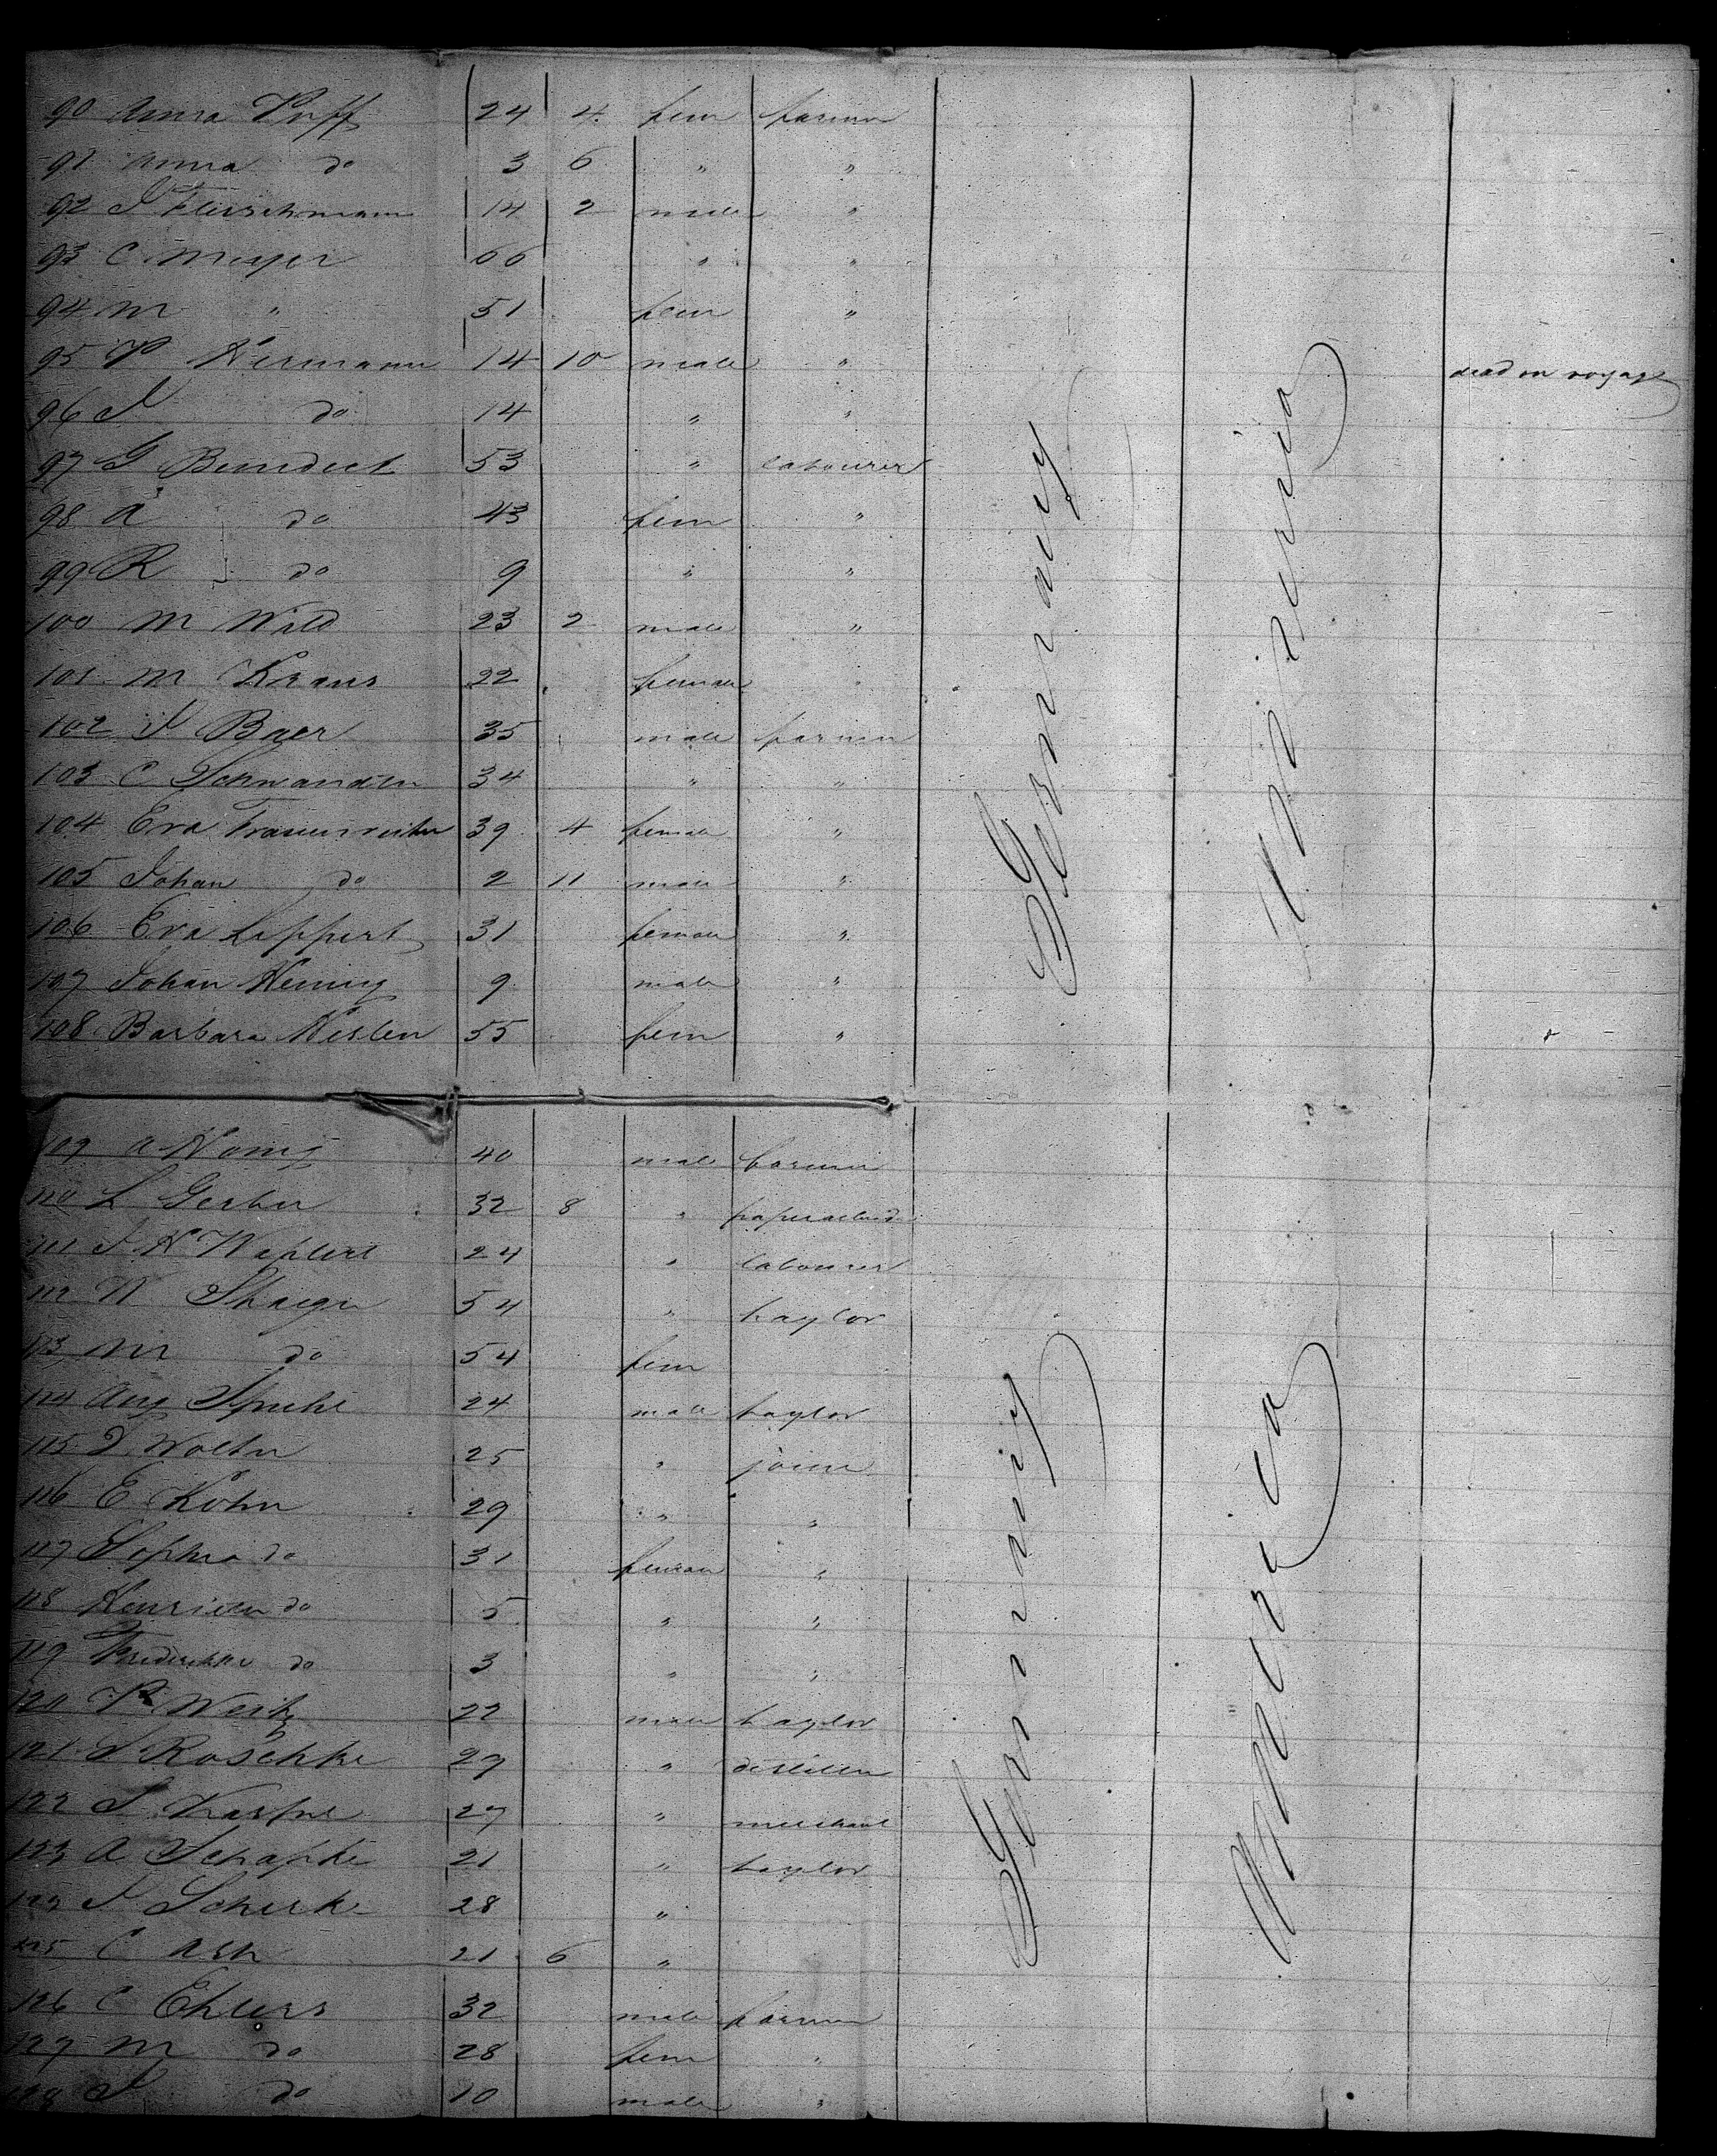 90 Anna Puff 24 4 fem farmer
91 Anna do 3 6 " "
92 J Fleischmann 14 2 male "
93 C Meyer 66 " "
94 M " 51 fem "
95 P Hermann 14 10 male " dead on voyage
96 J do 14 " "
97 G Benedict 53 " labourer
98 A do 43 fem "
99 R do 9 " "
100 M Wild 23 2 male "
101 M Kraus 22 female "
102 J Baer 35 male farmer
103 C Schwander 34 " "
104 Eva 39 4 female "
105 Johan do 2 11 male "
106 Eva Lippert 31 female "
107 Johan Hennig 9 male "
108 Barbara Kesten 55 fem "
Germany
America
109 A Konig 40 male farmer
110 L Gerber 32 8 "
111 J H 24 " labourer
112 W 54 " taylor
113 M do 54 fem
114 Aug 24 male taylor
115 J Wolter 25 " joiner
116 E Kohn 29 " "
117 Sophia do 31 female "
118 do 5 " "
119 do 3 " "
120 P 22 male taylor
121 J Roschke 29 " distiller
122 J 27 " merchant
123 A Schapke 21 " taylor
J Scherke 28 "
125 C Ash 21 6 "
126 C Ehlers 32 male farmer
127 M do 28 fem "
128 J do 10 male "
Germany
America